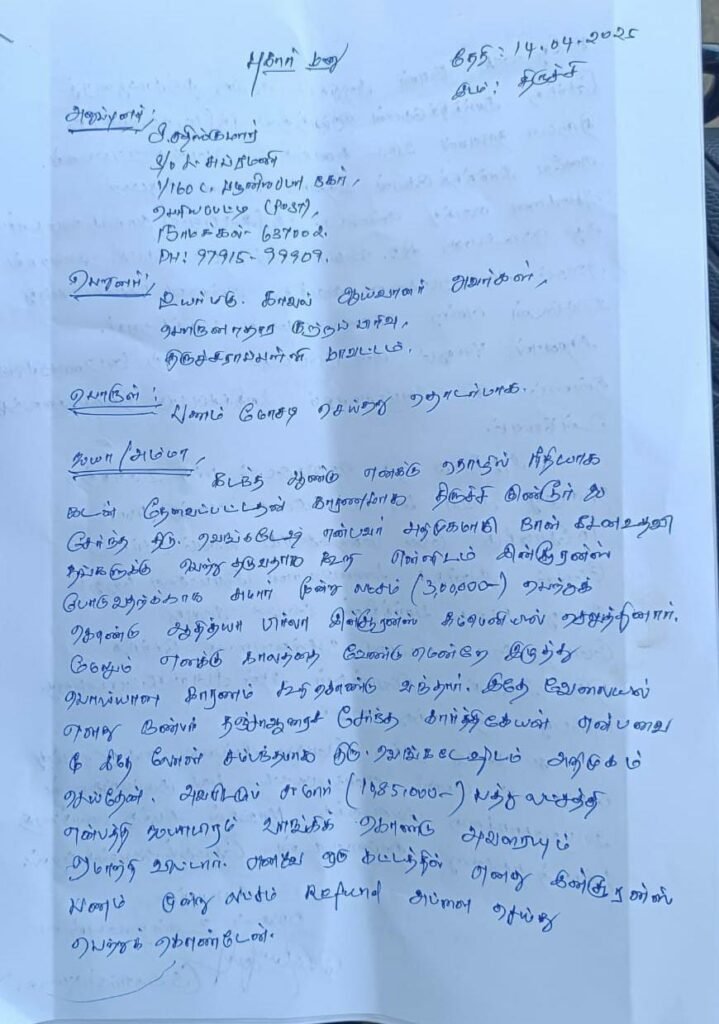 புகார் மனு
தேதி: 14.04.2025
இடம்: திருச்சி
அனுப்புனர்;
S/o
1/160 C, நகர்,
பெரியபட்டி (Post),
நாமக்கல் - 637002.
PH: 97915-99909.
பெறுனர்;
உயர்திரு. காவல் ஆய்வாளர் அவர்கள்,
பொருளாதார குற்றப் பிரிவு,
திருச்சிராப்பள்ளி மாவட்டம்.
பொருள்:
பணம் மோசடி செய்தது தொடர்பாக.
ஐயா/அம்மா,
கடந்த ஆண்டு எனக்கு தொழில் ரீதியாக
கடன் தேவைப்பட்டதன் காரணமாக திருச்சி
சேர்ந்த திரு. வெங்கடேஷ் என்பவர் அறிமுகமாகி நான்
தங்களுக்கு பெற்று தருவதாக கூறி என்னிடம் இன்சூரன்ஸ்
போடுவதற்காக சுமார் மூன்று லட்சம் (3,00,000-) பெற்றுக்
கொண்டு ஆதித்யா பிர்லா இன்சூரன்ஸ் கம்பெனியில் செலுத்தினார்.
மேலும் எனக்கு காலத்தை வேண்டுமென்றே இழுத்து
பொய்யான காரணம் கூறிகொண்டு வந்தார். இதே வேலையில்
எனது நண்பர் தஞ்சாவூரைச் சேர்ந்த கார்த்திகேயன் என்பவை
இதே லோன் சம்பந்தமாக திரு. வெங்கடேஷிடம் அறிமுகம்
செய்தேன். அவரிடமும் சுமார் (10,85,000-) பத்து லட்சத்தி
என்பத்தி ஐயாயிரம் வாங்கிக் கொண்டு அவரையும்
ஏமாற்றி விட்டார். எனவே ஒரு கட்டத்தில் எனது இன்சூரன்ஸ்
பணம் மூன்று லட்சம் Refund அப்ளை செய்து
பெற்றுக் கொண்டேன்.